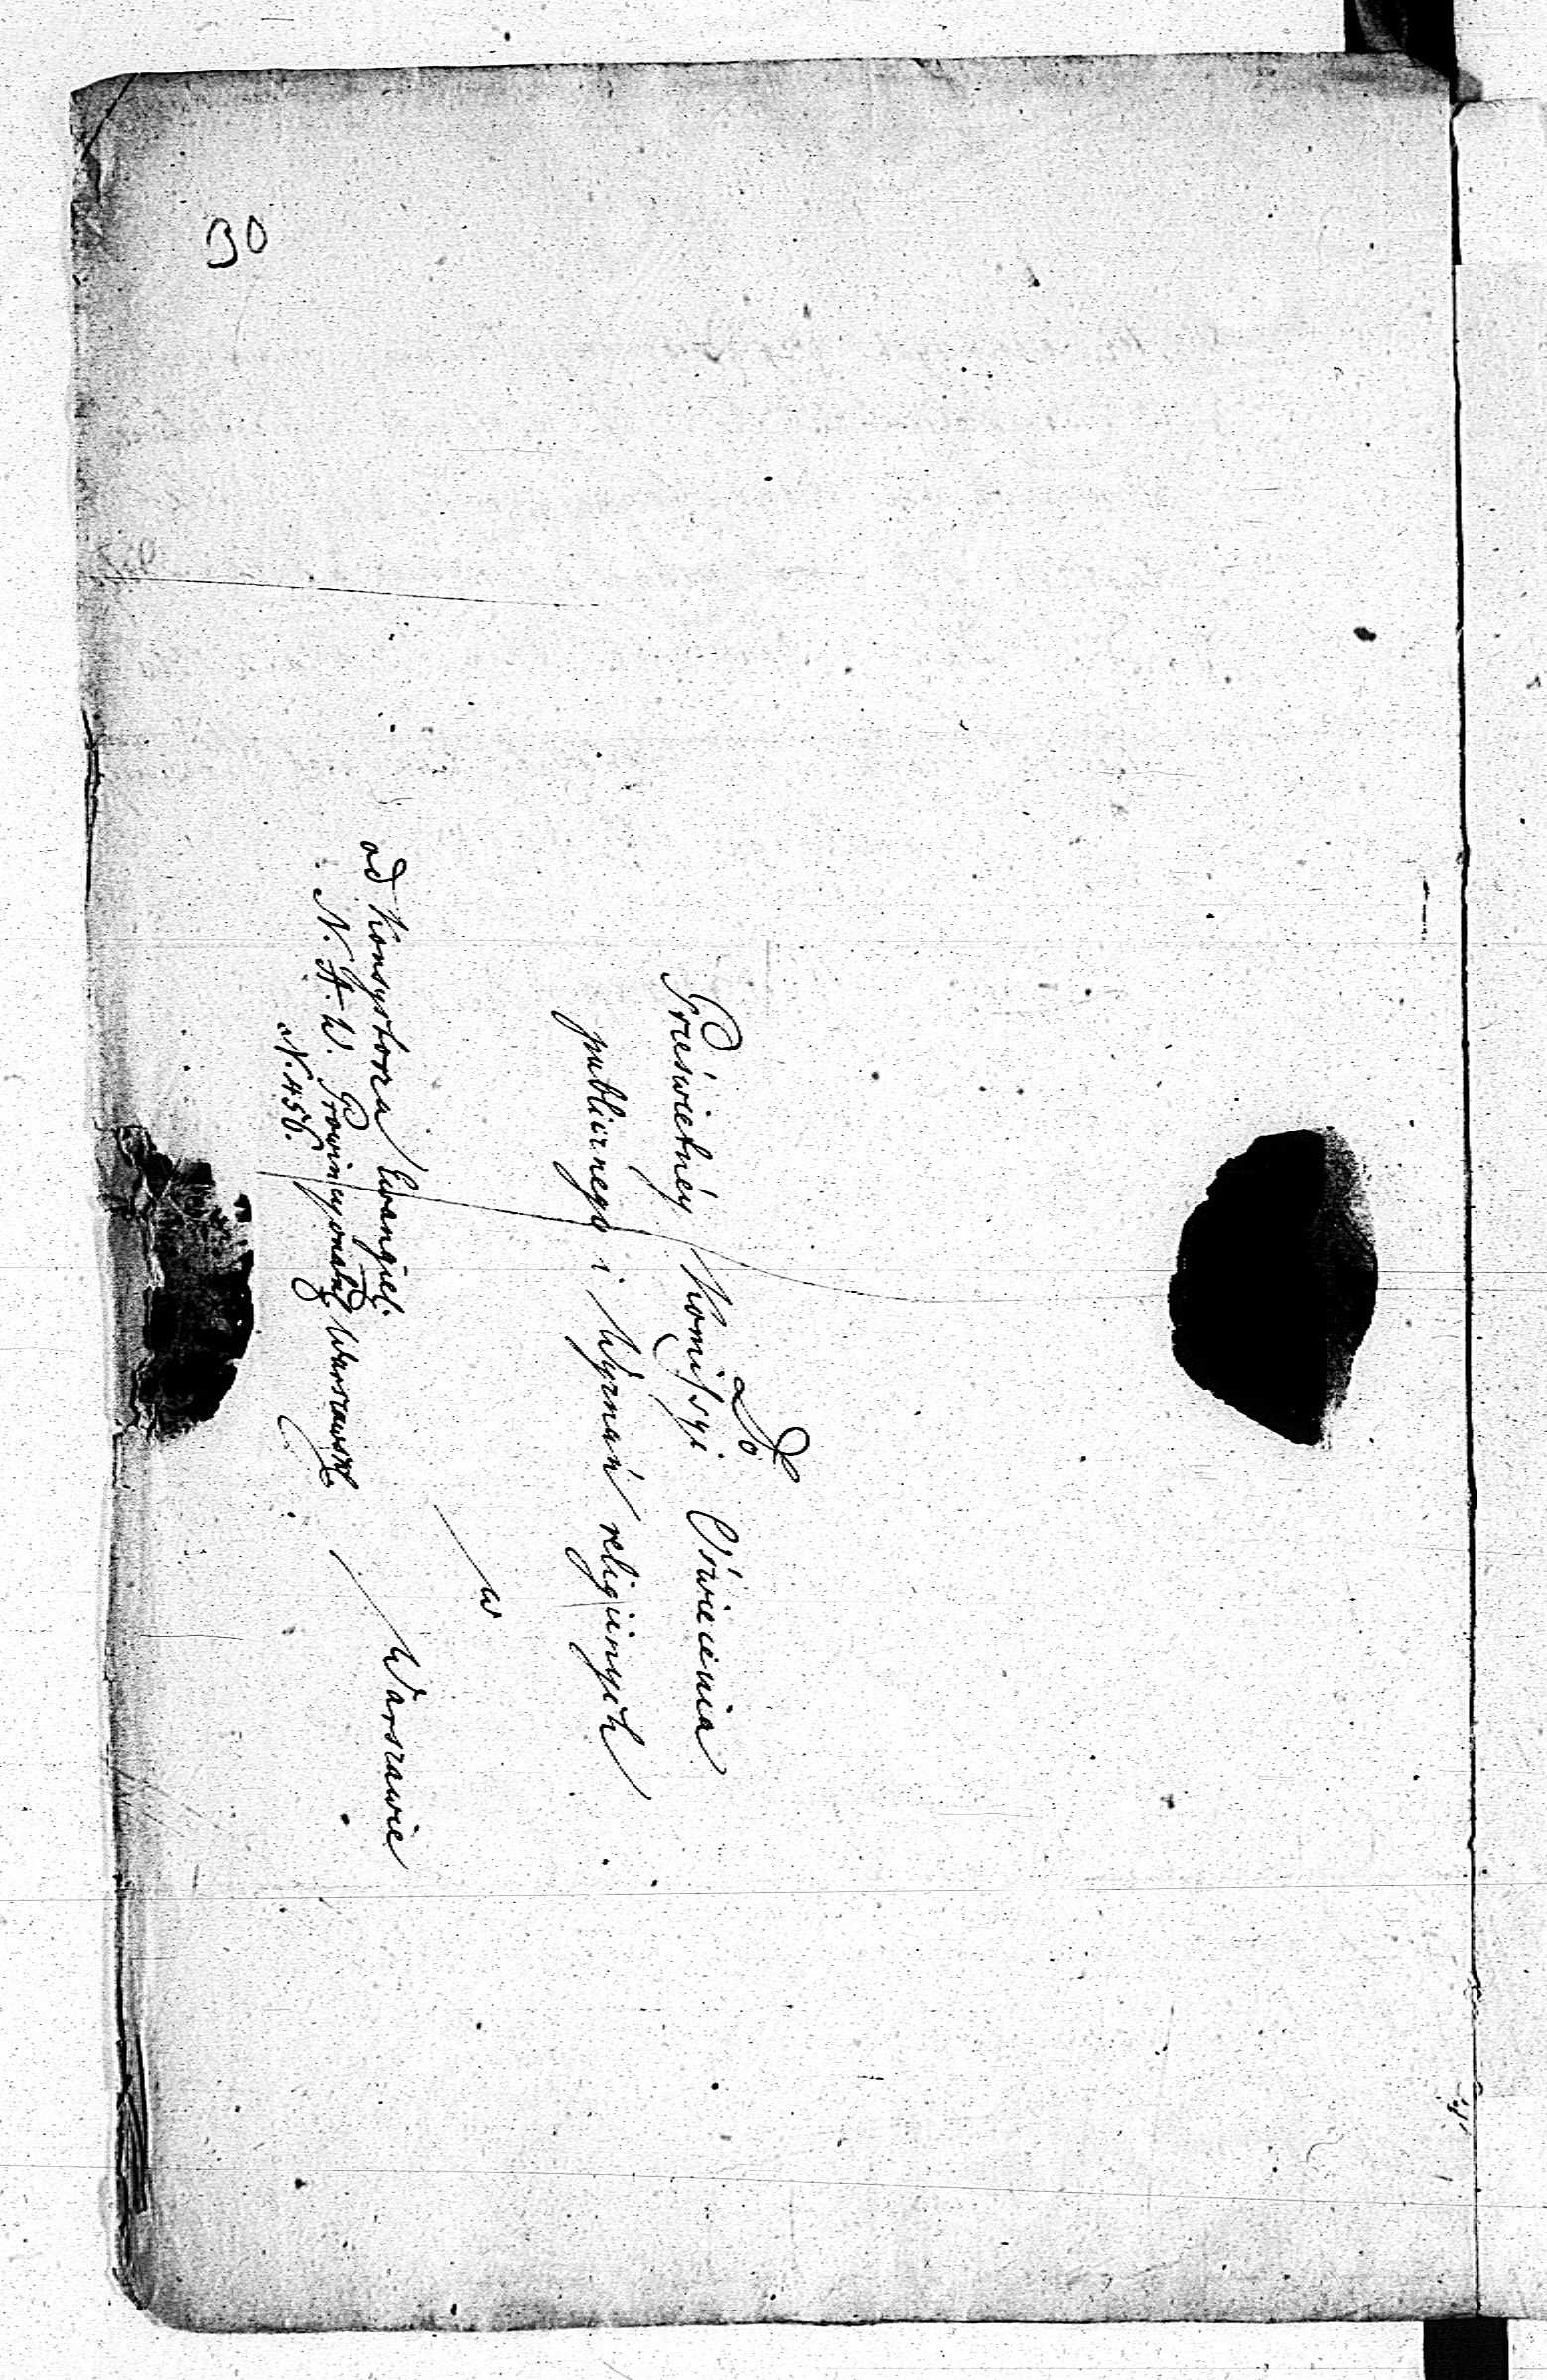 30
Do
Prześwietnéy Komissyi Oświecenia
publicznego i Wyznań religiinych
w
Warszawie
od Konsystorza Ewangiel:
N. A. W. Prowincyonaln: Warszawsk:
N. 456.